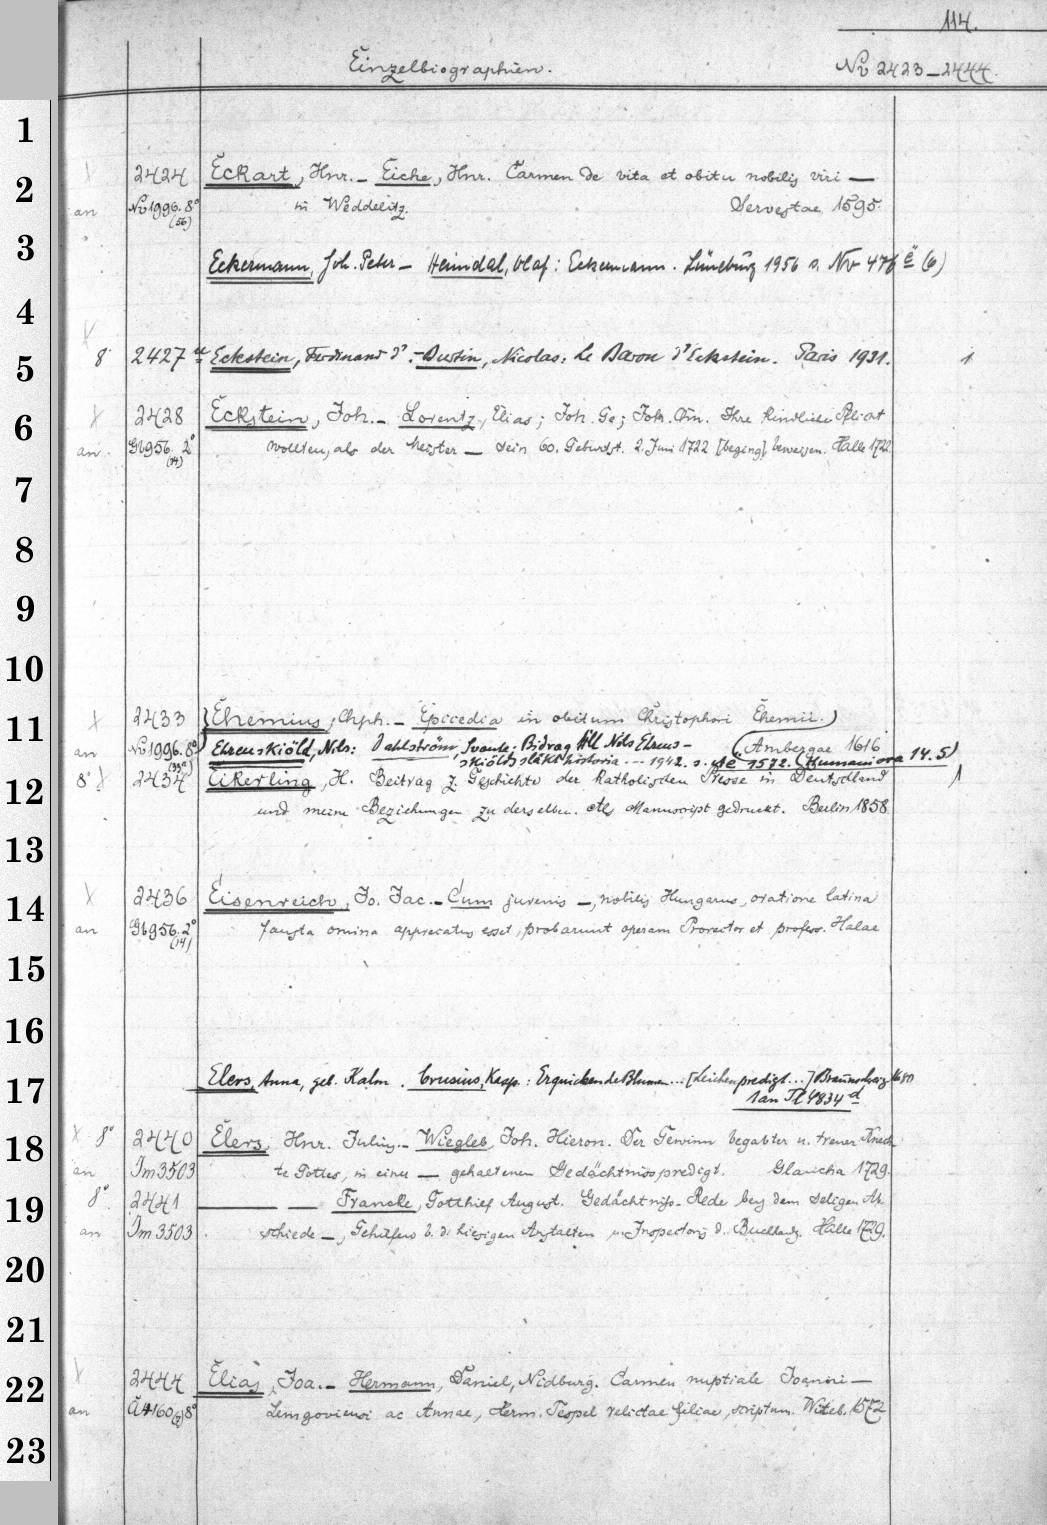 114.
Einzelbiographien. Nv 2423–2444.
1
2424 Eckart, Hnr. – Eiche, Hnr. Carmen de vita et obitu nobilis viri —
2
an Nv 1996. 8° in Weddelitz. Servestae 1595.
(56)
3
Eckermann, Joh. Peter – Heimdal, Olaf: Eckermann. Lüneburg 1956 s. Nv 476 ë (6)
4
8° 2427 a Eckstein, Ferdinand d'. – Burtin, Nicolas: Le Baron d'Eckstein. Paris 1931. 1
5
6
2428 Eckstein, Joh. – Lorentz, Elias; Joh. Ge; Joh. Chn. Ihre kindliche Pflicht
an Gb 956. 2° wollten, als der Meister — sein 60. Geburtst. 2. Juni 1722 [beging] beweisen. Halle 1722.
(14)
7
8
9
10
11
2433 (Ehemius, Chph. – Epicedia in obitum Christophori Ehemii.)
an Nv 1996. 8° Ehrenskiöld, Nils: Dahlström, Svante: Bidrag till Nils Ehren- (Ambergae 1616
skiölds släkthistoria ... 1942. s. Ae 1572. (Humaniora 14.5)
12
8° 2434 Eikerling, H. Beitrag z. Geschichte der katholischen Presse in Deutschland 1
und meine Beziehungen zu derselben. Als Manuscript gedruckt. Berlin 1858
13
14
2436 Eisenreich, Jo. Jac. – Cum juvenis —, nobilis Hungarus, oratione latina
an Gb 956. 2° fausta omina apprecatus esset, probarunt operam Prorector et profess. Halae
(14)
15
16
17
Elers, Anna, geb. Kalm. Crusius, Kasp.: Erquickende Blumen ... [Leichenpredigt ...] Braunschweig 1680
1 an Tl 4834 d
18
8° 2440 Elers, Hnr. Julius. – Wiegleb, Joh. Hieron. Der Gewinn begabter u. treuer Knech
an Im 3503 te Gottes, in einer — gehaltenen Gedächtnisspredigt. Glaucha 1729.
19
8° 2441 — — Francke, Gotthilf August. Gedächtniss-Rede bey dem seligen Ab-
an Im 3503 schiede —, Gehilfens b. d. hiesigen Anstalten u. Inspectoris d. Buchhandg. Halle 1729.
20
21
22
2444 Elias, Joa. – Hermann, Daniel, Nidburg. Carmen nuptiale Joanni —
an 4160 8° Lemgoviensi ac Annae, Herm. Tespel relictae filiae, scriptum. Witeb. 1572
23